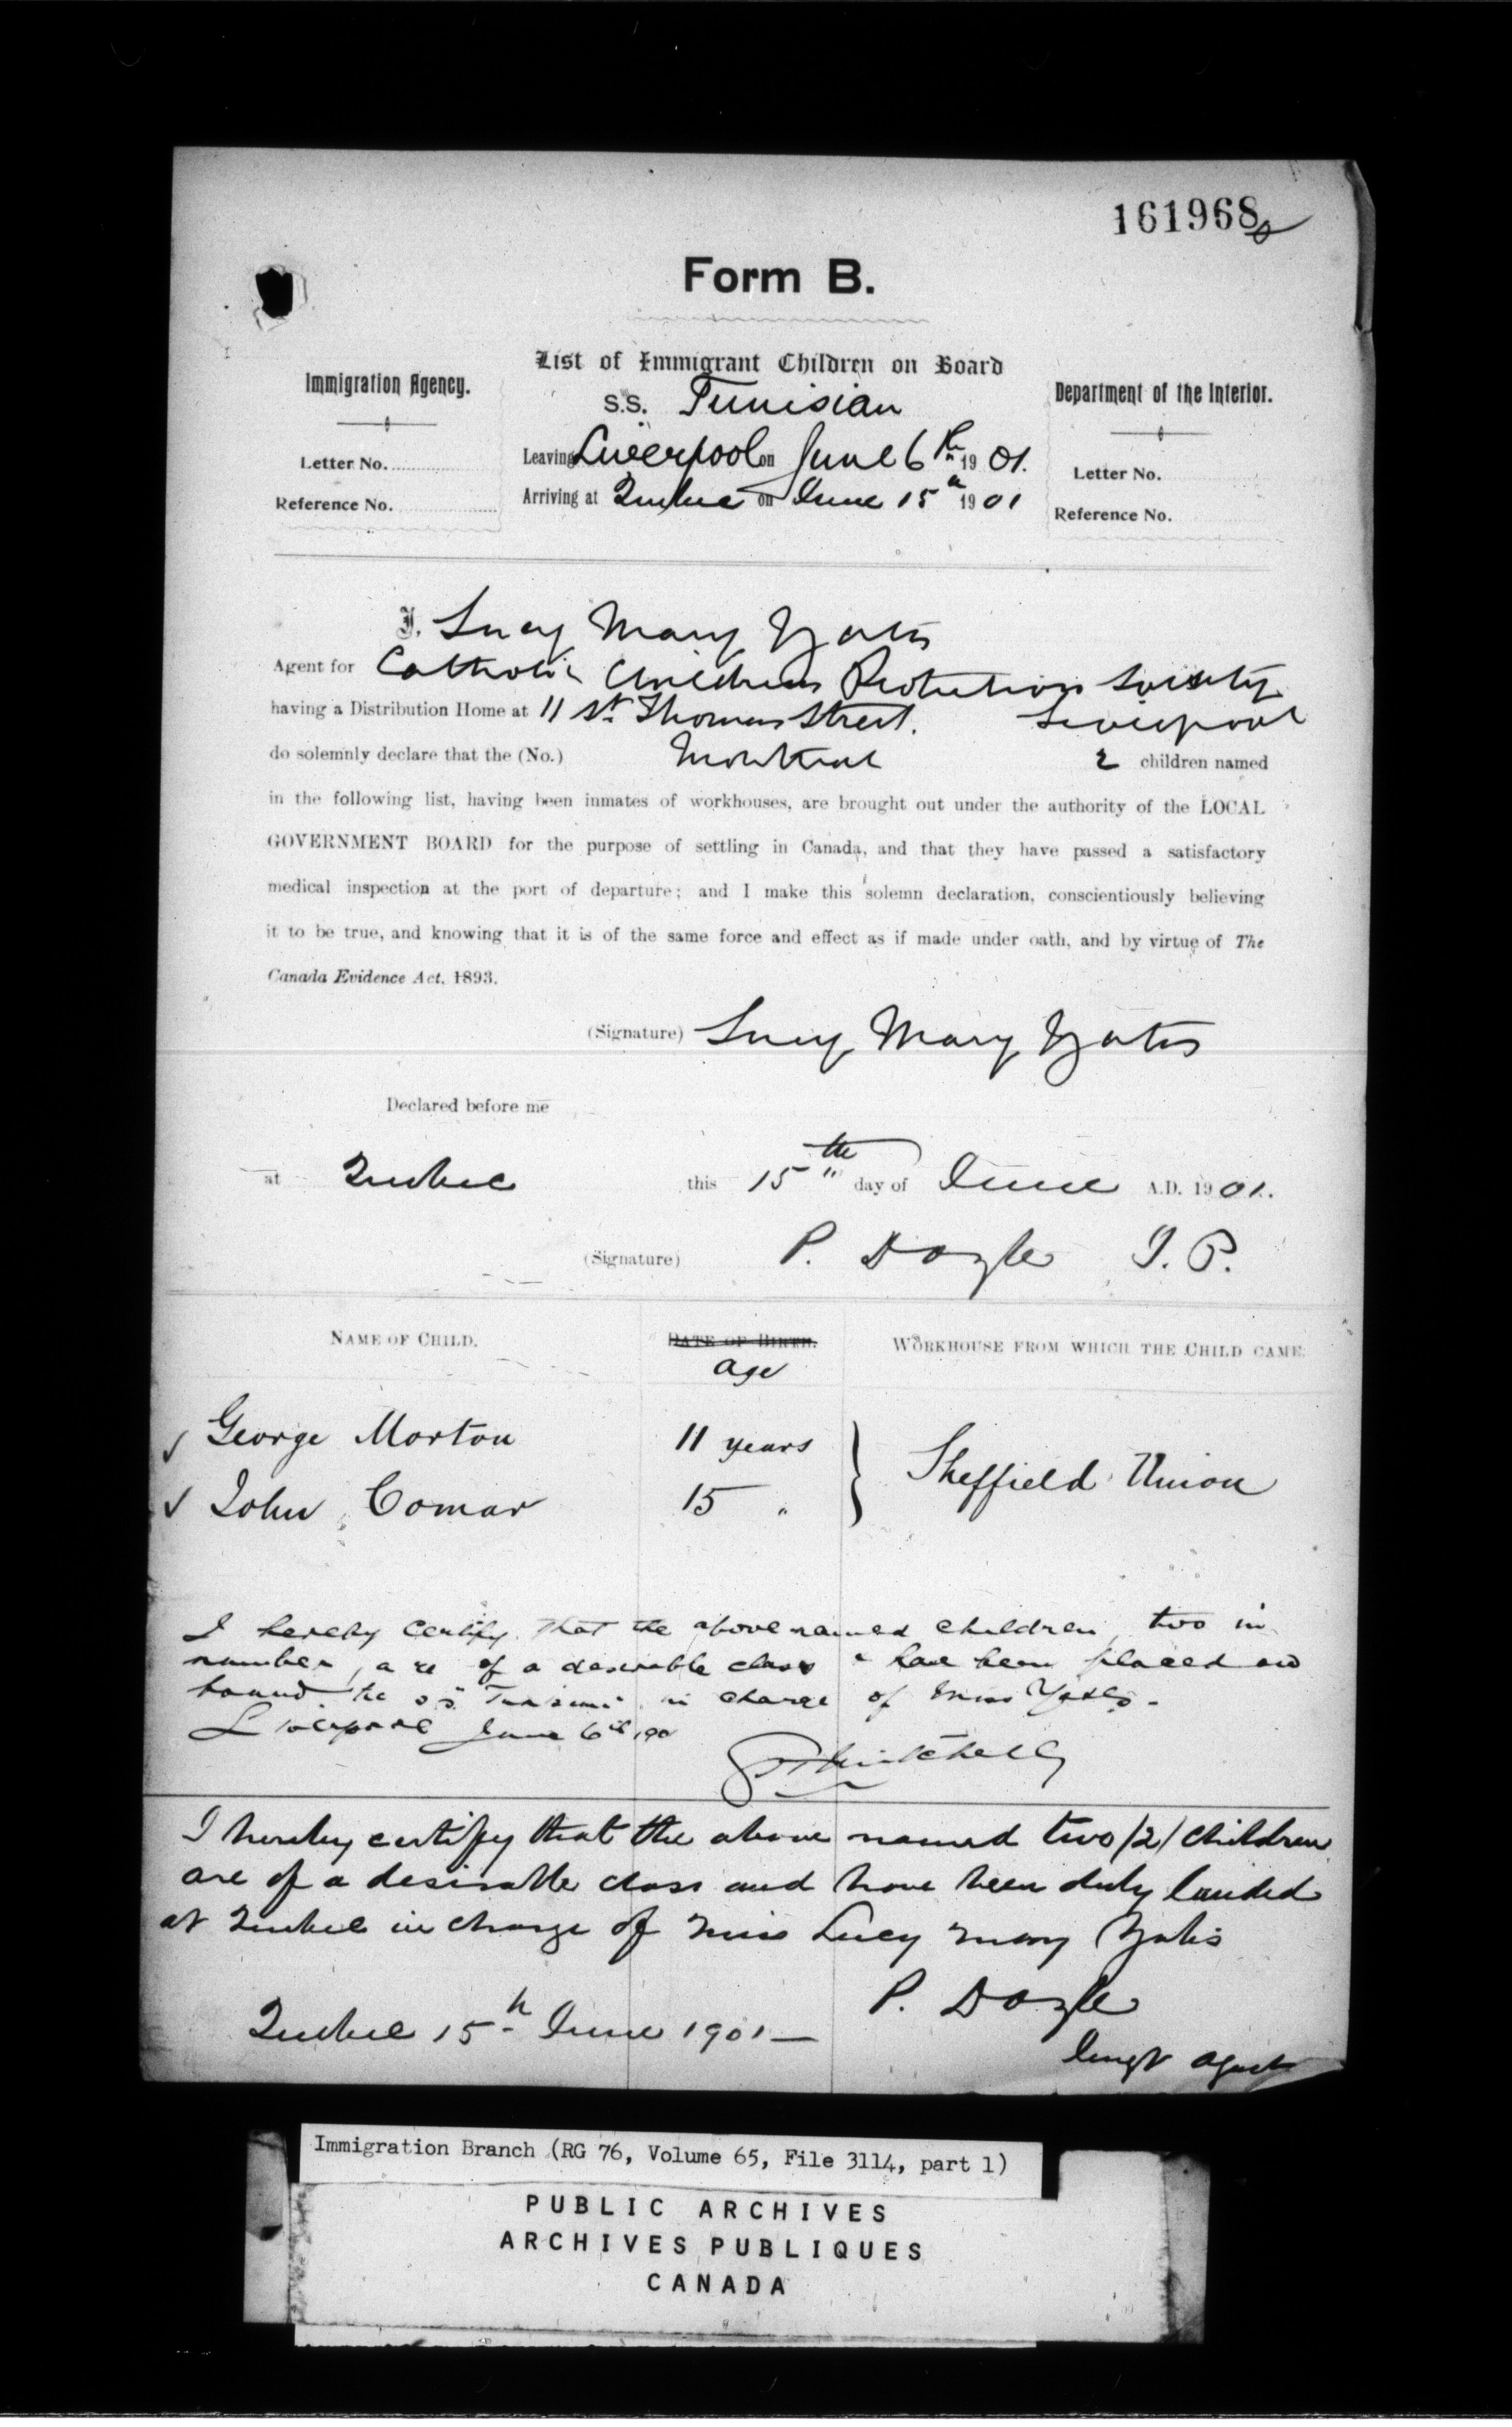 161968
Form B.
List of Immigrant Children on Board
S.S. Tunisian
Immigration Agency.
Letter No.
Reference No.
Leaving Liverpool on June 6th 1901.
Arriving at Quebec on June 15th 1901
Department of the Interior.
Letter No.
Reference No.
I, Lucy Mary Yates
Agent for Catholic Childrens Protection Society
Liverpool
having a Distribution Home at 11 St. Thomas Street.
Montreal
do solemnly declare that the (No.) 2 children named
in the following list, having been inmates of workhouses, are brought out under the authority of the LOCAL
GOVERNMENT BOARD for the purpose of settling in Canada, and that they have passed a satisfactory
medical inspection at the port of departure; and I make this solemn declaration, conscientiously believing
it to be true, and knowing that it is of the same force and effect as if made under oath, and by virtue of The
Canada Evidence Act, 1893.
(Signature) Lucy Mary Yates
Declared before me
at Quebec this 15th day of June A.D. 1901.
(Signature) P. Doyle J.P.
NAME OF CHILD. DATE OF BIRTH. WORKHOUSE FROM WHICH THE CHILD CAME.
age
George Morton 11 years
Sheffield Union
John Comar 15 "
I hereby certify that the above named children, two in
number, are of a desirable class & have been placed on
board the ss. Tunisian in charge of Miss Yates -
Liverpool June 6th 190
Mitchell
I hereby certify that the above named two /2/ children
are of a desirable class and have been duly landed
at Quebec in charge of Miss Lucy Mary Yates
P. Doyle
Quebec 15th June 1901 —
Agent
Immigration Branch (RG 76, Volume 65, File 3114, part 1)
PUBLIC ARCHIVES
ARCHIVES PUBLIQUES
CANADA